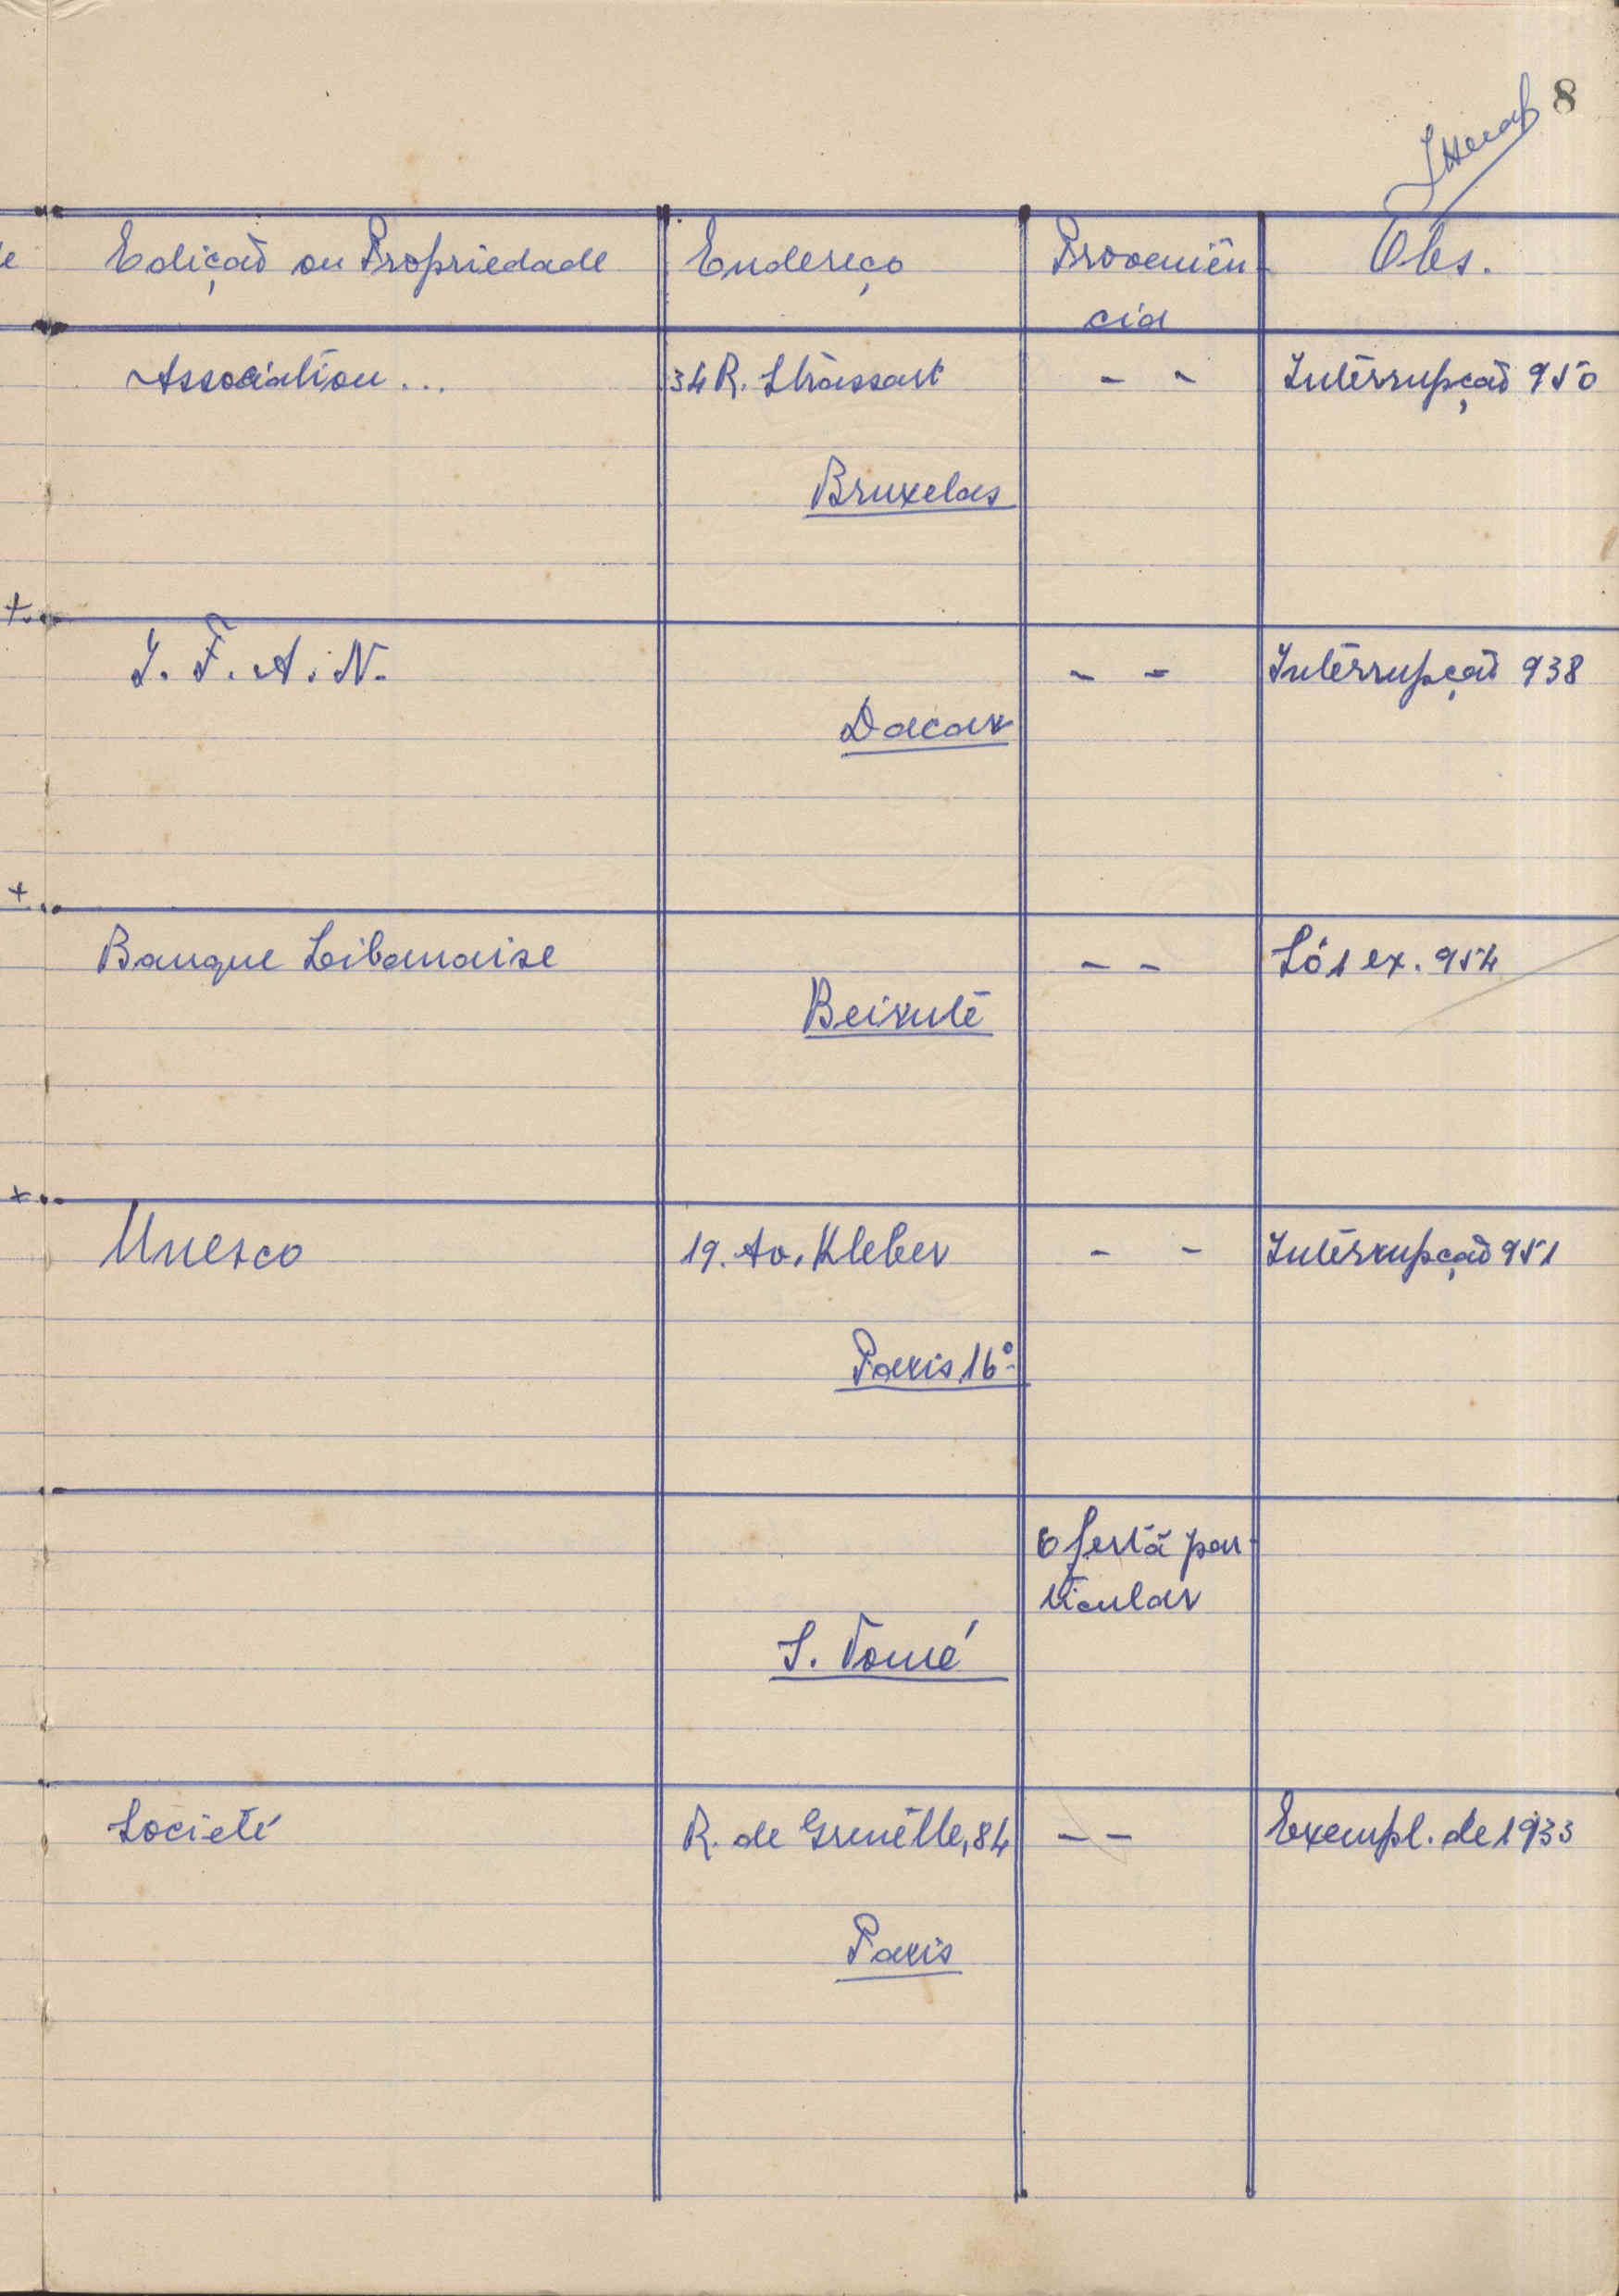 8
Edição ou Propriedade Endereço Proveniên-
cia Obs.
Association... 34 R. Strassart - - Interrupção 950
Bruxelas
I. F. A. N. - - Interrupção 938
Dacar
Banque Libanaise - - Só 1 ex. 954
Beirute
Unesco 19. Av. Kleber - - Interrupção 951
Paris 16º
Oferta par-
ticular
S. Tomé
Societé R. de Grenelle, 84 - - Exempl. de 1933
Paris